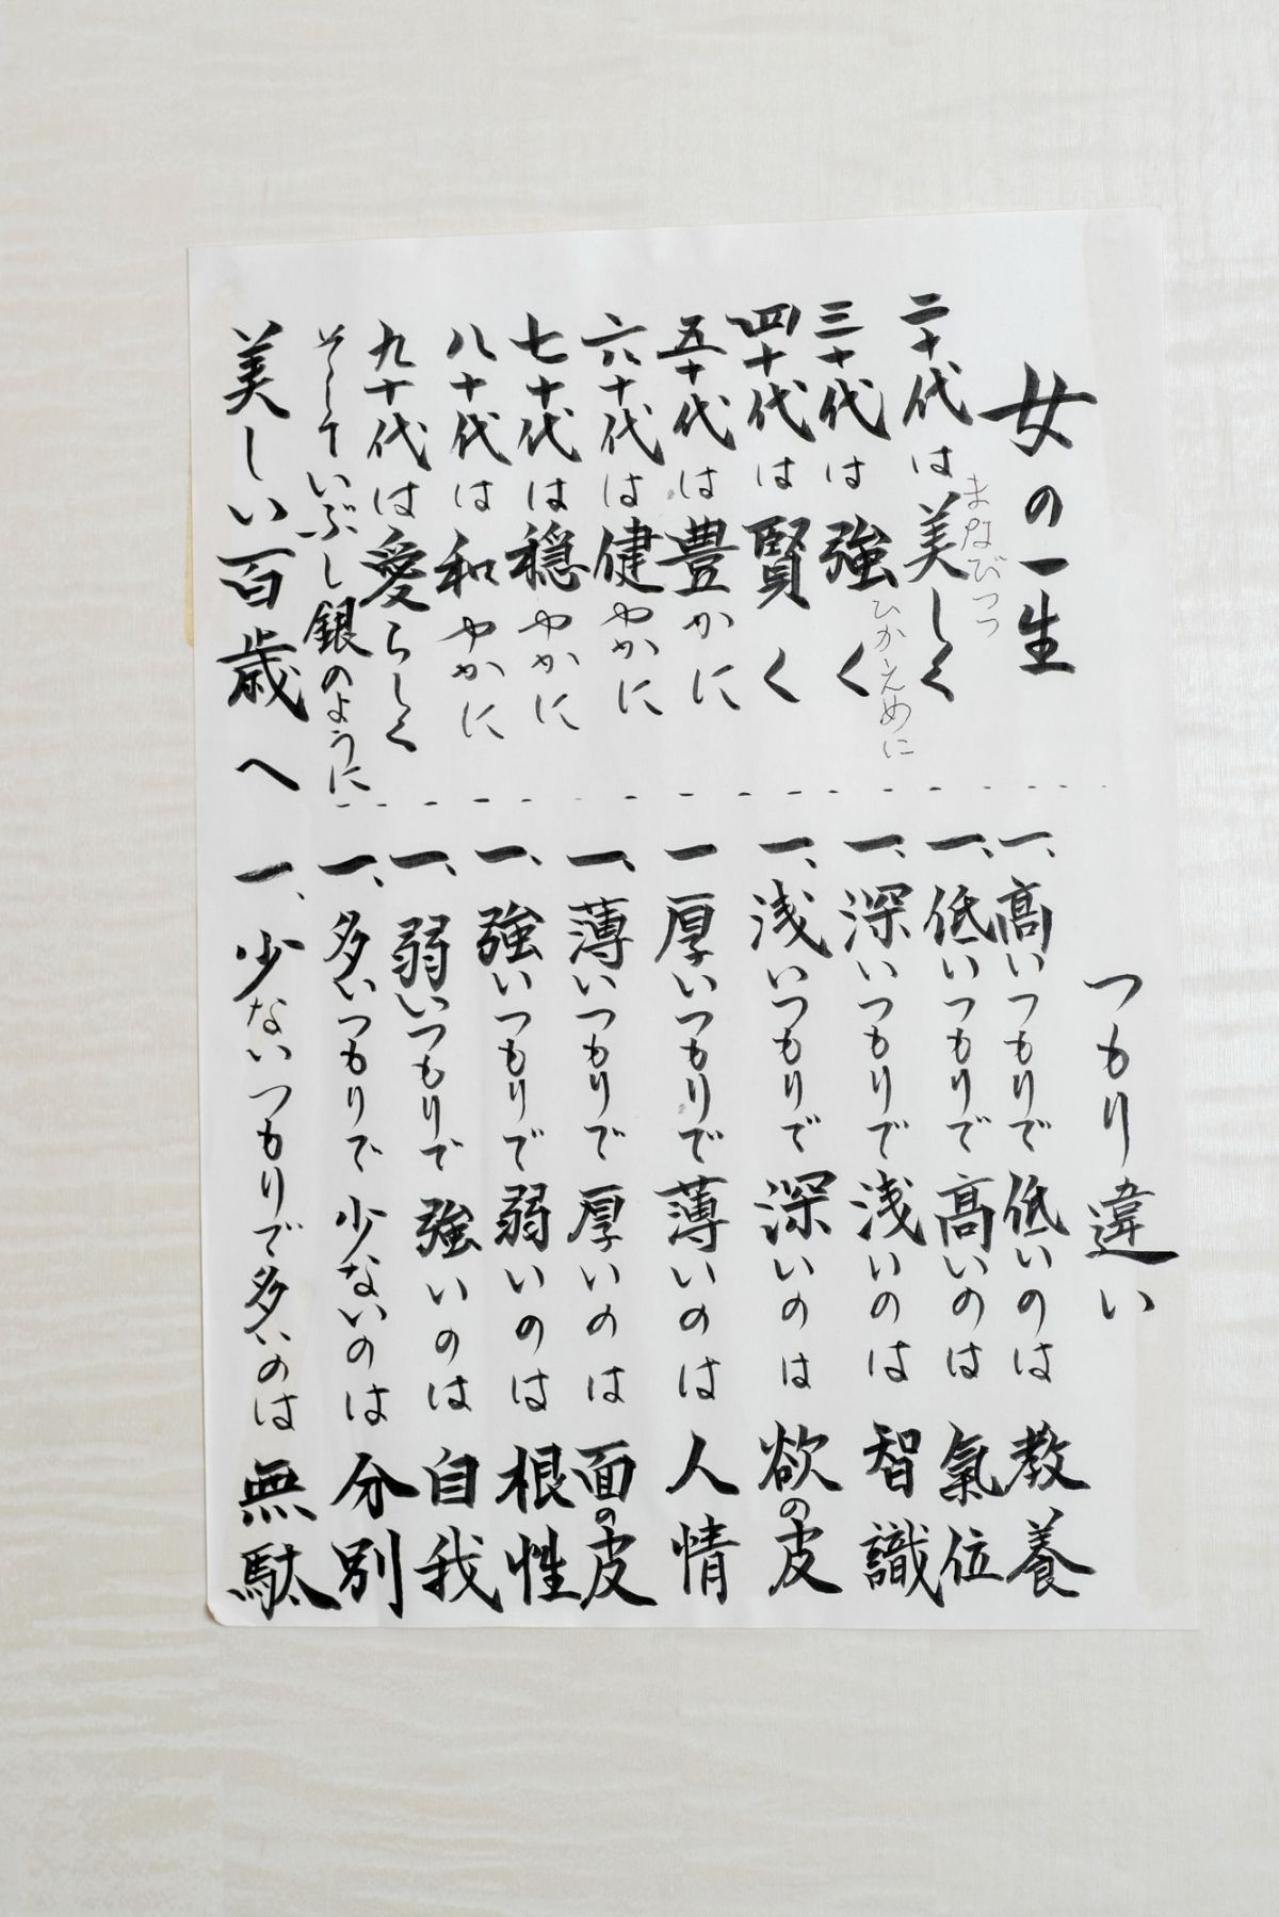 女の一生
二十代は美しく
まなびつつ
三十代は強く
ひかえめに
四十代は賢く
五十代は豊かに
六十代は健やかに
七十代は穏やかに
八十代は和やかに
九十代は愛らしく
そしていぶし銀のように
美しい百歳へ
つもり違い
一、高いつもりで低いのは教養
一、低いつもりで高いのは氣位
一、深いつもりで浅いのは智識
一、浅いつもりで深いのは欲の皮
一厚いつもりで薄いのは人情
一、薄いつもりで厚いのは面の皮
一、強いつもりで弱いのは根性
一、弱いつもりで強いのは自我
一、多いつもりで少ないのは分別
一、少ないつもりで多いのは無駄